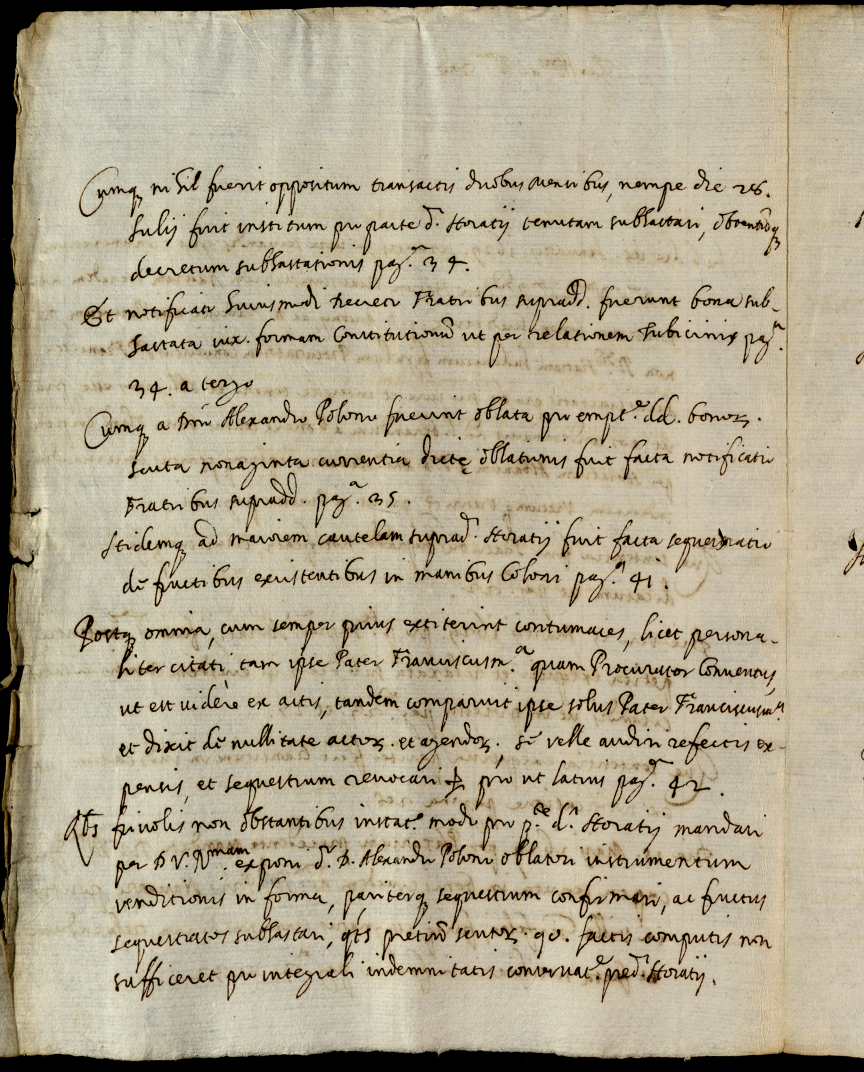 Cumq, nihil fuerit oppositum transactis duobus mensibus, nempe die 28.
Julij fuit institum pro parte d. Horatij tenutam subhastari, obtentoq
decretum subhastationis pag.ª 34.
Et notificati huiusmodi decreti Fratribus supradd. fuerunt bona sub-
hastata iux. formam Constitutionū ut per relationem Tubicinis pag.ª
34. a tergo
Cumq a Dno Alexandro Polono fuerint oblata pro empt.e dd. bonor.
scuta nonaginta currentia dictę oblationis fuit facta notificatio
Fratribus supradd. pag.ª 35.
Itidemq ad maiorem cautelam suprad. Horatij fuit facta sequestratio
de fructibus existentibus in manibus Coloni pag.ª 41.
Postq omnia, cum semper prius extiterint contumaces, licet persona-
liter citati tam ipse Pater Franciscusm.ª quam Procurator Conventus,
ut est vidère ex actis, tandem comparuit ipse solus Pater Franciscusm.ª
et dixit de nullitate actor. et agendor. se velle audiri refectis ex-
pensis, et sequestrum revocari prō ut latius pag.ª 42.
Qbs frivolis non obstantibus instat.r modo pro p.te d.i Horatij mandari
per D.V.Ill.mam exponi d.o D. Alexandro Polono oblatori instrumentum
venditionis in forma, pariterq sequestrum confirmari, ac fructus
sequestratos subhastari, qts pretiū scutor. 90. factis computis non
sufficeret pro integrali indemnitatis conservat.e pred. Horatij.